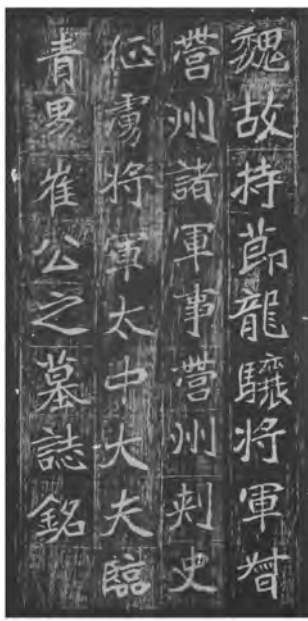 魏故持莭龍驤将軍督
營州諸軍事營州刾史
征虜将軍太中大夫臨
青男崔公之墓誌銘